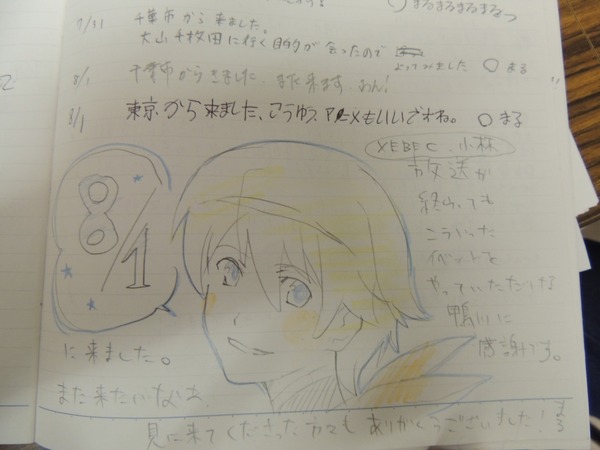 まるまるまるまるっ
7/31 千葉市から来ました。
大山千枚田に行く目的が会ったので
よってみました ○まる
8/1 千葉市からきました。また来ます。わん!
8/1 東京から来ました、こうゆう、アニメもいいですね。 ○まる
XEBEC 小林
8/1
放送が
終わっても
こういった
イベントを
やっていただけな
鴨川に
感謝です。
に来ました。
また来たいなぁ
見に来てくださった方々も ありがとうございました! まる